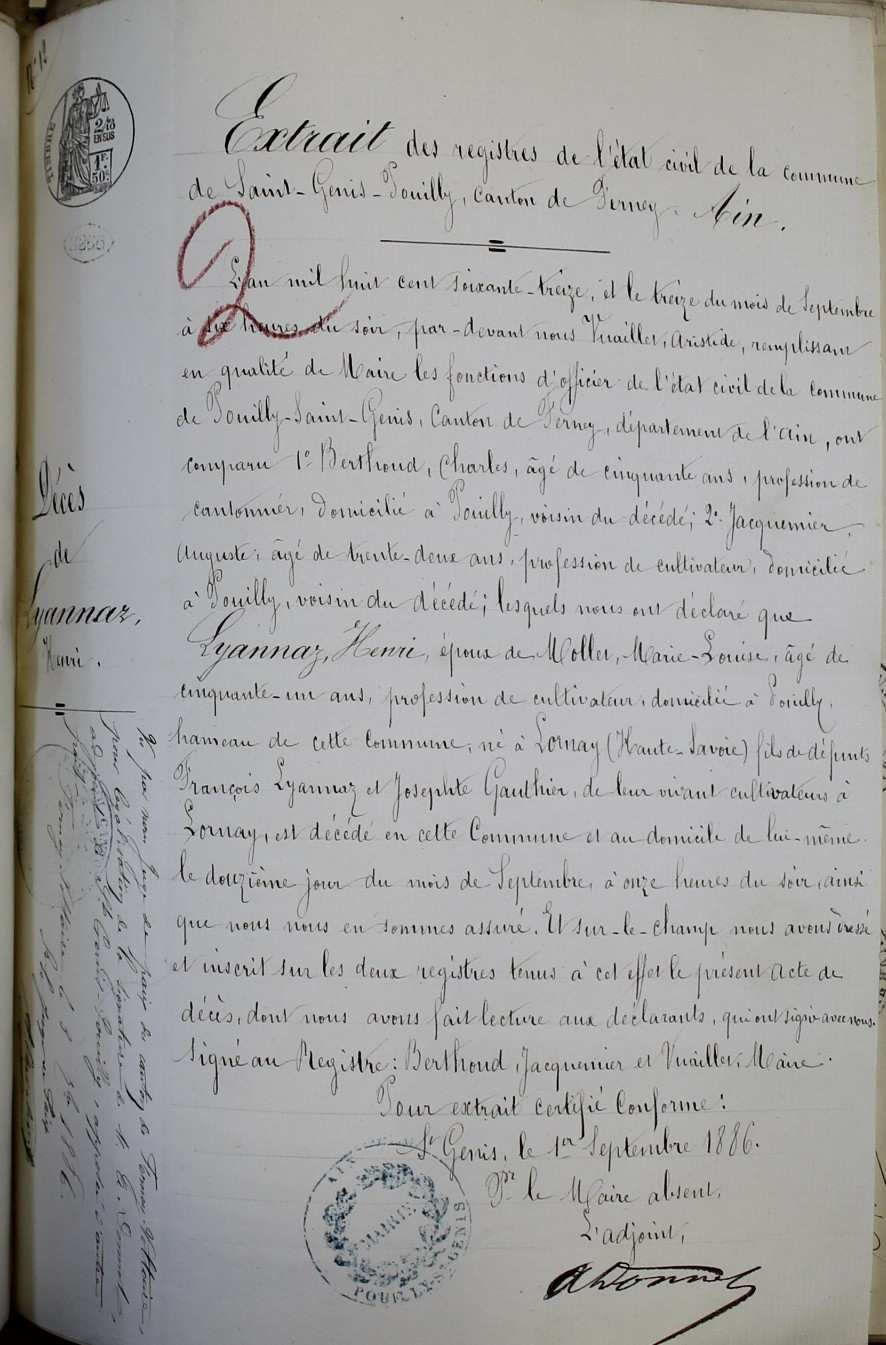 N° 12
TIMBRE
2/10
EN SUS
1F
50c
3266
Extrait des registres de l'état civil de la commune
de Saint-Genis-Pouilly, canton de Ferney. Ain.
2
L'an mil huit cent soixante-treize, et le treize du mois de Septembre
à six heures du soir, par-devant nous Vuaillet, Aristide, remplissant
en qualité de Maire les fonctions d'officier de l'état civil de la commune
de Pouilly-Saint-Genis, Canton de Ferney, département de l'Ain, ont
comparu 1° Berthoud, Charles, âgé de cinquante ans, profession de
cantonnier, domicilié à Pouilly, voisin du décédé; 2° Jacquemier,
Auguste, âgé de trente-deux ans, profession de cultivateur, domicilié
à Pouilly, voisin du décédé; lesquels nous ont déclaré que
Lyannaz, Henri, époux de Mollet, Marie-Louise, âgé de
cinquante-un ans, profession de cultivateur, domicilié à Pouilly,
hameau de cette Commune, né à Lornay (Haute-Savoie) fils de défunts
François Lyannaz et Josephte Gauthier, de leur vivant cultivateurs à
Lornay, est décédé en cette Commune et au domicile de lui-même
le douzième jour du mois de Septembre, à onze heures du soir, ainsi
que nous nous en sommes assuré. Et sur-le-champ nous avons dressé
et inscrit sur les deux registres tenus à cet effet le présent acte de
décès, dont nous avons fait lecture aux déclarants, qui ont signé avec nous.
Signé au Registre: Berthoud, Jacquemier et Vuaillet, Maire.
Pour extrait certifié conforme:
St Genis, le 1er Septembre 1886.
Pr le Maire absent,
L'adjoint,
MAIRIE
AIN
POUILLY-ST-GENIS
Décès
de
Lyannaz,
Henri.
Vu par nous Juge de paix du canton de Ferney-Voltaire,
pour légalisation de la signature de M.
adjoint de St Genis-Pouilly, apposée ci-contre
Ferney-Voltaire le 3 1886.
Le Juge de Paix